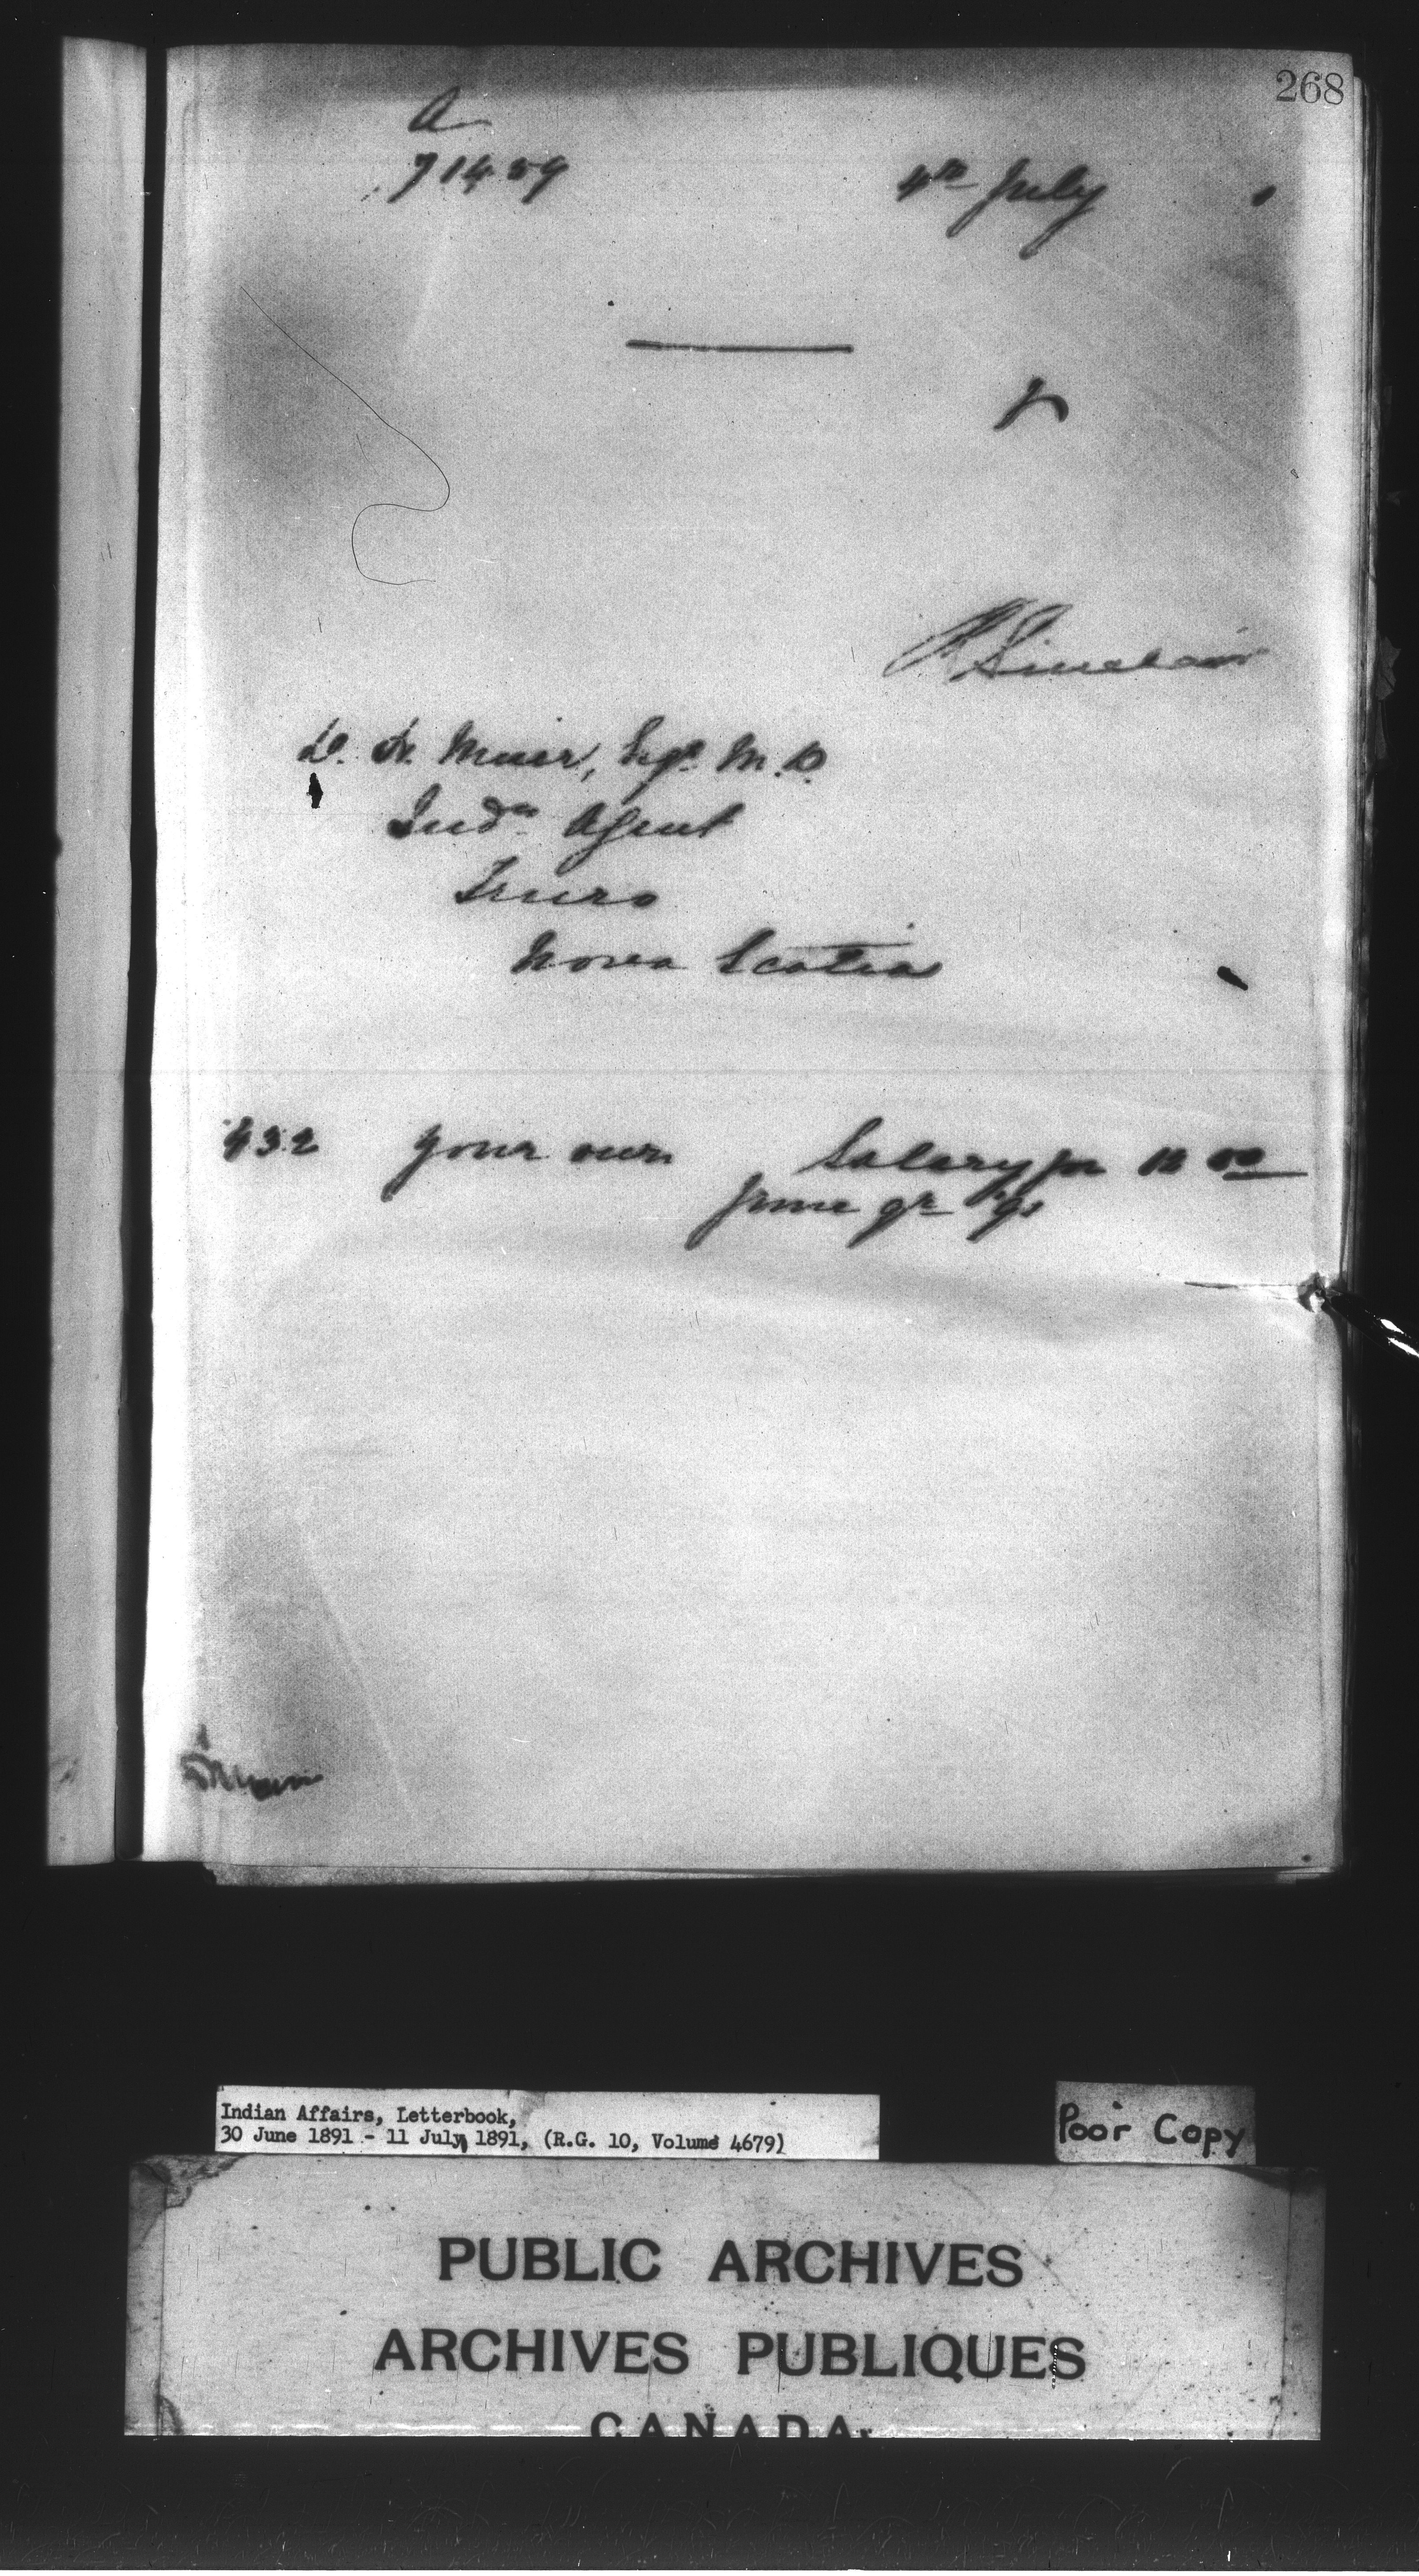 268
A
71459
4th July
R Sinclair
D. H. Muir, Esqr. M.D.
Indn Agent
Truro
Nova Scotia
432 your own Salary for 12 50
June qr '91
Indian Affairs, Letterbook,
30 June 1891 - 11 July 1891, (R.G. 10, Volume 4679)
Poor Copy
PUBLIC ARCHIVES
ARCHIVES PUBLIQUES
CANADA